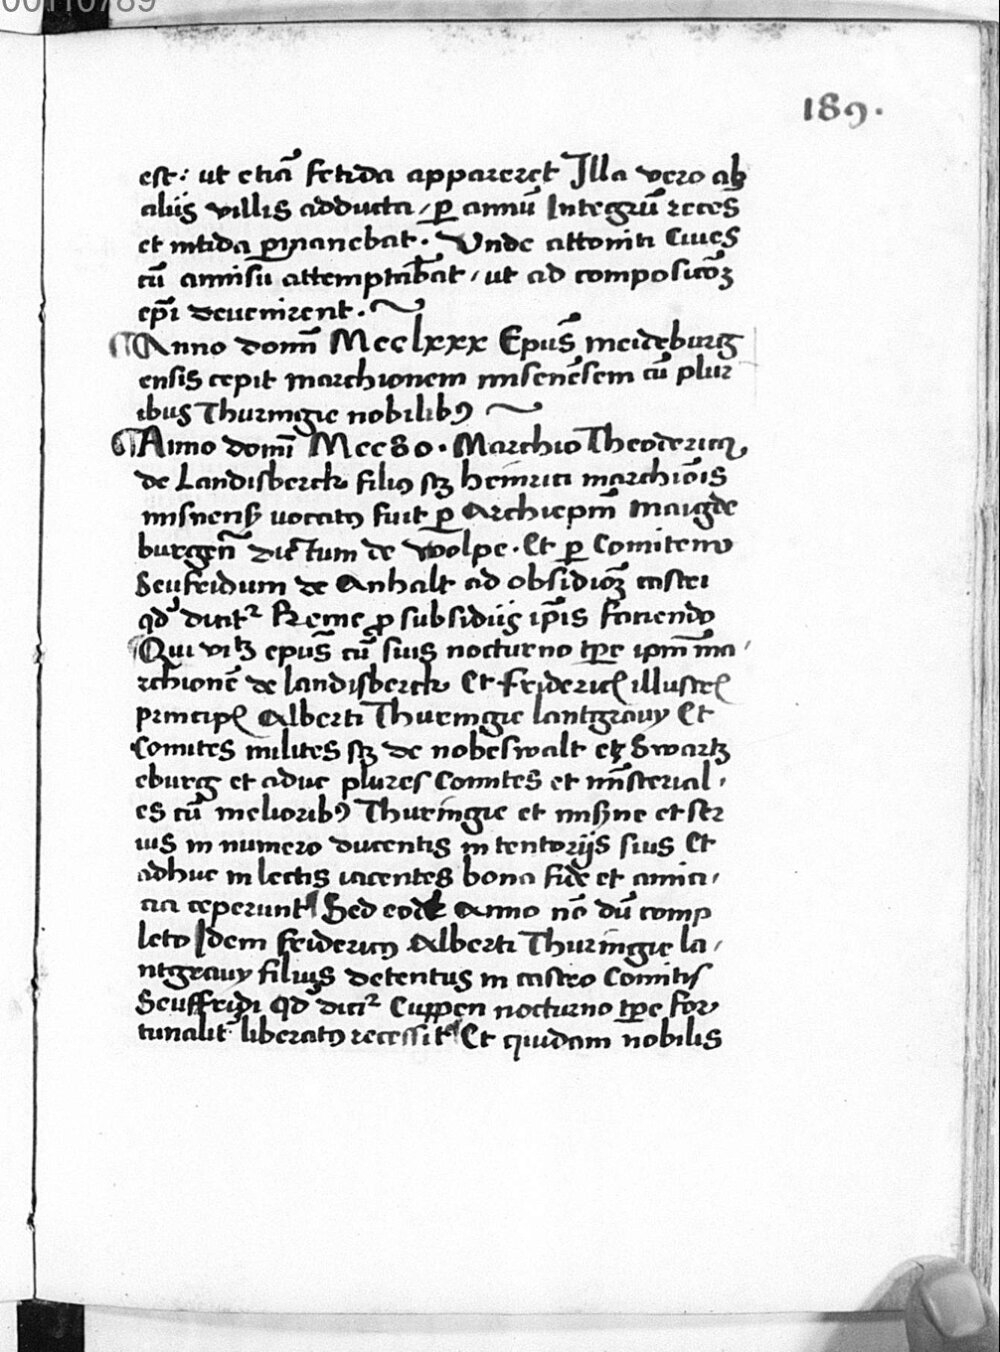 00110789
189.
est: ut etiā fetida appareret Illa vero ab
aliis villis adducta / ꝑ annū Integrū recēs
et nitida ꝑmanebat. Unde attoniti Cives
cū amiisū attemptabāt / ut ad composicōꝫ
ep̄i devenirent.
Anno domī Mcclxxx Epūs meideburg
ensis cepit marchionem misenēsem cū plur
ibus Thuringie nobilibꝰ
Anno domī Mcc80. Marchio Theodericꝰ
de Landisberck filiꝰ sꝫ heinrici marchiōis
misnensꝭ vocatꝰ fuit ꝑ Archiep̄m Maigde
burgen̄ dictum de Wolpe. Et ꝑ Comitem
Seufridum de Anhalt ad obsidiōꝫ castri
qd̄ dicitr Reme ꝓ subsidiis ip̄is faciendo
Qui vitꝫ epūs cū suis nocturno tꝑe ip̄m ma /
rchionē de landisberck Et friderici illustrꝭ
principꝭ Alberti Thuringie lantgravy Et
Comites milites sꝫ de nobeswalt etꝫ Swartz
eburg et aduc plures Comites et mīsterial /
es cū melioribꝰ Thuringie et misṅe et ser
vis in numero ducentis in tentoriis suis Et
adhuc in lectis iacentes bona fide et amici /
cia ceperunt Sed eodē Anno nō dū comp
leto Idem fridericꝰ Alberti Thuringie la /
ntgravy filius detentus in castro Comitis
Seuffridi qd̄ dicir Cuppen nocturno tꝑe for
tunalit̄ liberatꝰ recessit Et quidam nobilis